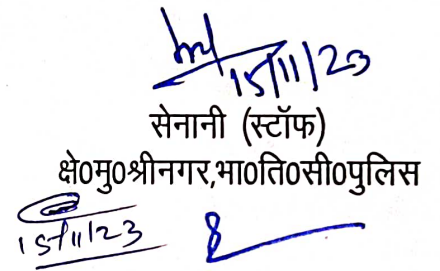 15/11/23
सेनानी (स्टॉफ)
क्षे०मु०श्रीनगर,भा०ति०सी०पुलिस
15/11/23